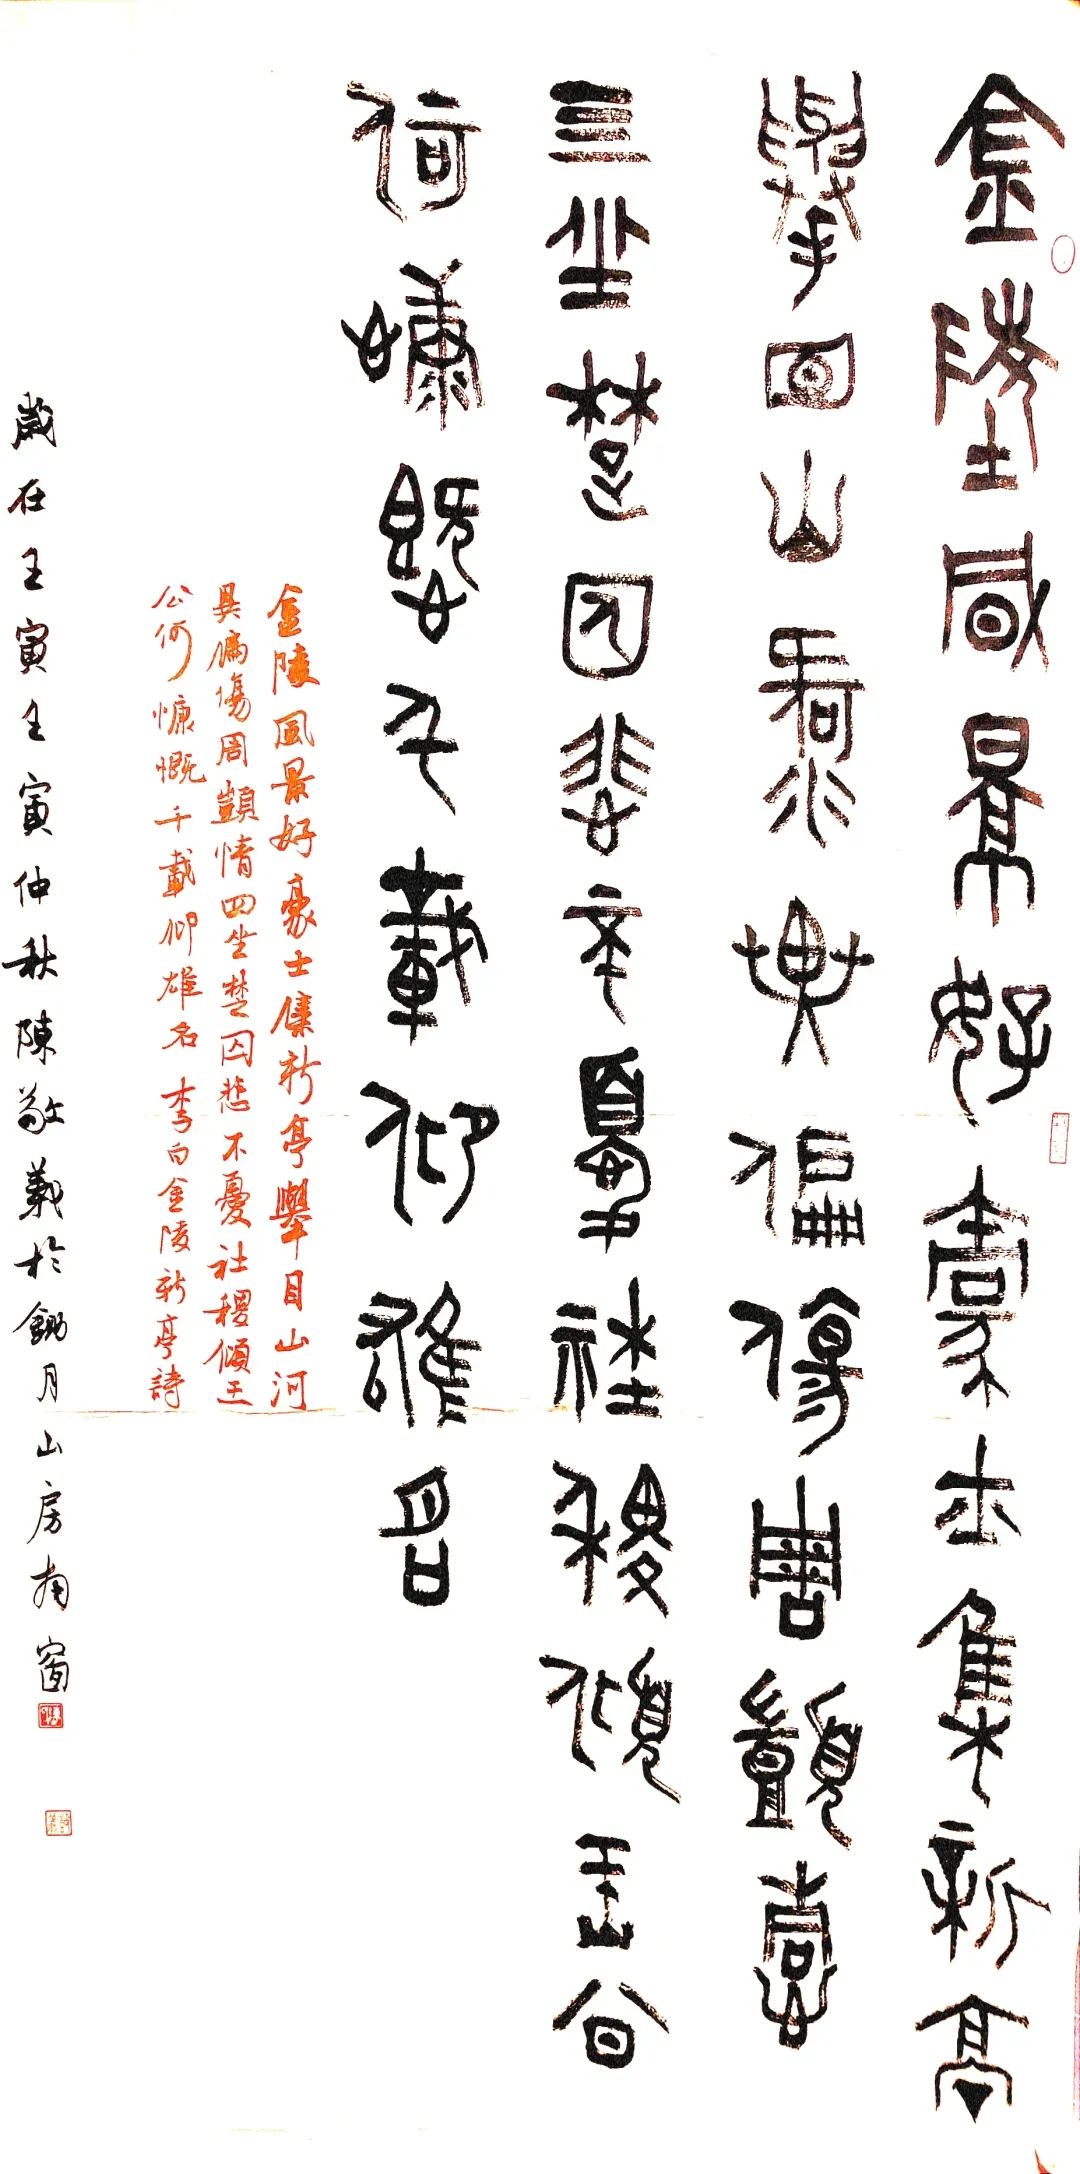 金陵風景好豪士集新亭
舉目山河異偏傷周顗情
三坐楚囚悲不憂社稷傾王公
何慷慨千載仰雄名
金陵風景好豪士集新亭舉目山河
異偏傷周顗情四坐楚囚悲不憂社稷傾王
公何慷慨千載仰雄名 李白金陵新亭詩
歲在王寅壬寅仲秋陳敬義於鋤月山房南窗